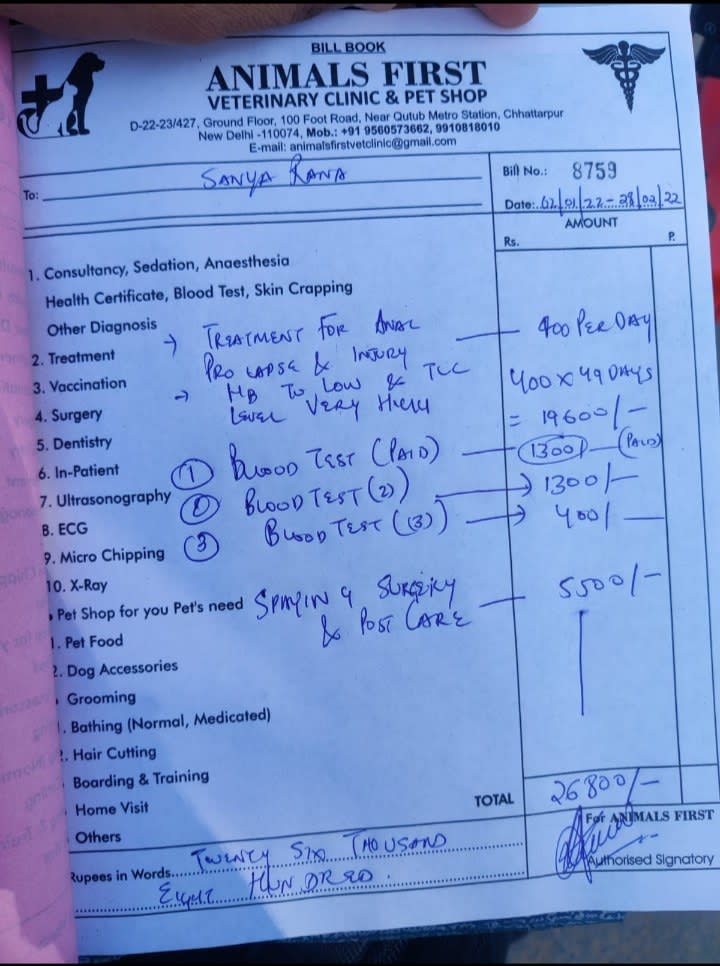 BILL BOOK
ANIMALS FIRST
VETERINARY CLINIC & PET SHOP
D-22-23/427, Ground Floor, 100 Foot Road, Near Qutub Metro Station, Chhattarpur
New Delhi -110074, Mob.: +91 9560573662, 9910818010
E-mail: animalsfirstvetclinic@gmail.com
To: SANYA RANA
Bill No.: 8759
Date: 02/01/22 - 28/02/22
AMOUNT
Rs. P.
1. Consultancy, Sedation, Anaesthesia
Health Certificate, Blood Test, Skin Crapping
Other Diagnosis
→ TREATMENT FOR ANAL — 400 PER DAY
2. Treatment
PROLAPSE & INJURY
3. Vaccination
→ HB TO LOW & TLC 400 X 49 DAYS
4. Surgery
LEVEL VERY HIGH = 19600/-
5. Dentistry
6. In-Patient
① BLOOD TEST (PAID) — 1300 — (PAID)
7. Ultrasonography
② BLOOD TEST (2) → 1300/-
8. ECG
③ BLOOD TEST (3) → 400/—
9. Micro Chipping
10. X-Ray
Pet Shop for you Pet's need
SPAYING SURGERY — 5500/-
& POST CARE
1. Pet Food
2. Dog Accessories
Grooming
1. Bathing (Normal, Medicated)
2. Hair Cutting
Boarding & Training
Home Visit
TOTAL 26800/-
Others
For ANIMALS FIRST
Authorised Signatory
Rupees in Words TWENTY SIX THOUSAND
EIGHT HUNDRED.